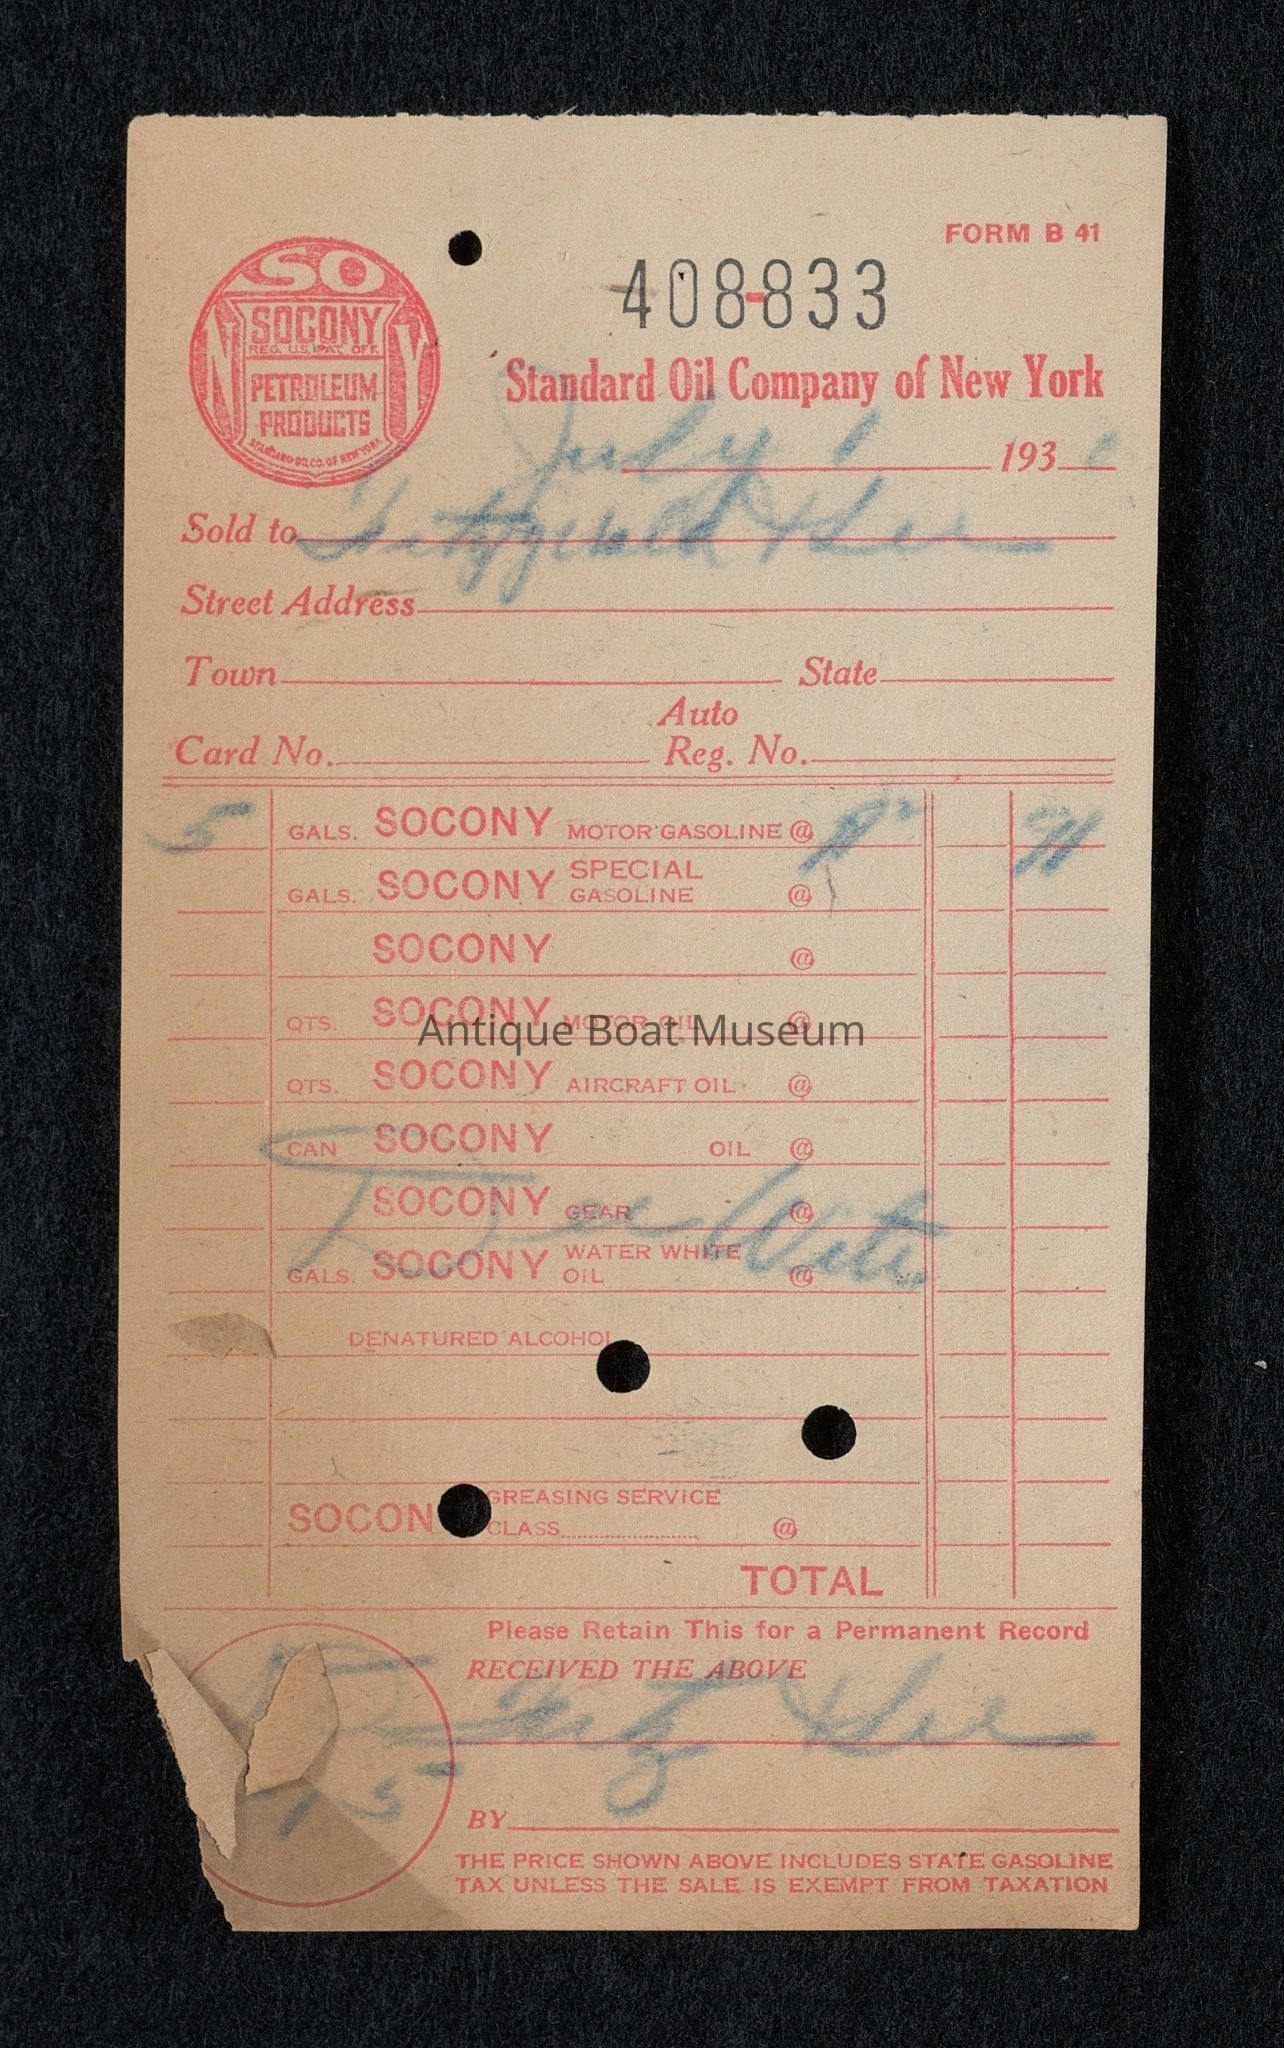 FORM B 41
408-833
SO
SOCONY
REG. U.S. PAT. OFF.
NY
PETROLEUM
PRODUCTS
STANDARD OIL CO. OF NEW YORK
Standard Oil Company of New York
July 1 193
Sold to Fitzgerald & Lee
Street Address
Town State
Auto
Card No. Reg. No.
5 GALS. SOCONY MOTOR GASOLINE @
GALS. SOCONY SPECIAL GASOLINE @
SOCONY @
QTS. SOCONY MOTOR OIL @
Antique Boat Museum
QTS. SOCONY AIRCRAFT OIL @
CAN SOCONY OIL @
SOCONY GEAR @
GALS. SOCONY WATER WHITE OIL @
DENATURED ALCOHOL
SOCON GREASING SERVICE
CLASS @
TOTAL
Please Retain This for a Permanent Record
RECEIVED THE ABOVE
Fitz & Lee
BY
THE PRICE SHOWN ABOVE INCLUDES STATE GASOLINE
TAX UNLESS THE SALE IS EXEMPT FROM TAXATION